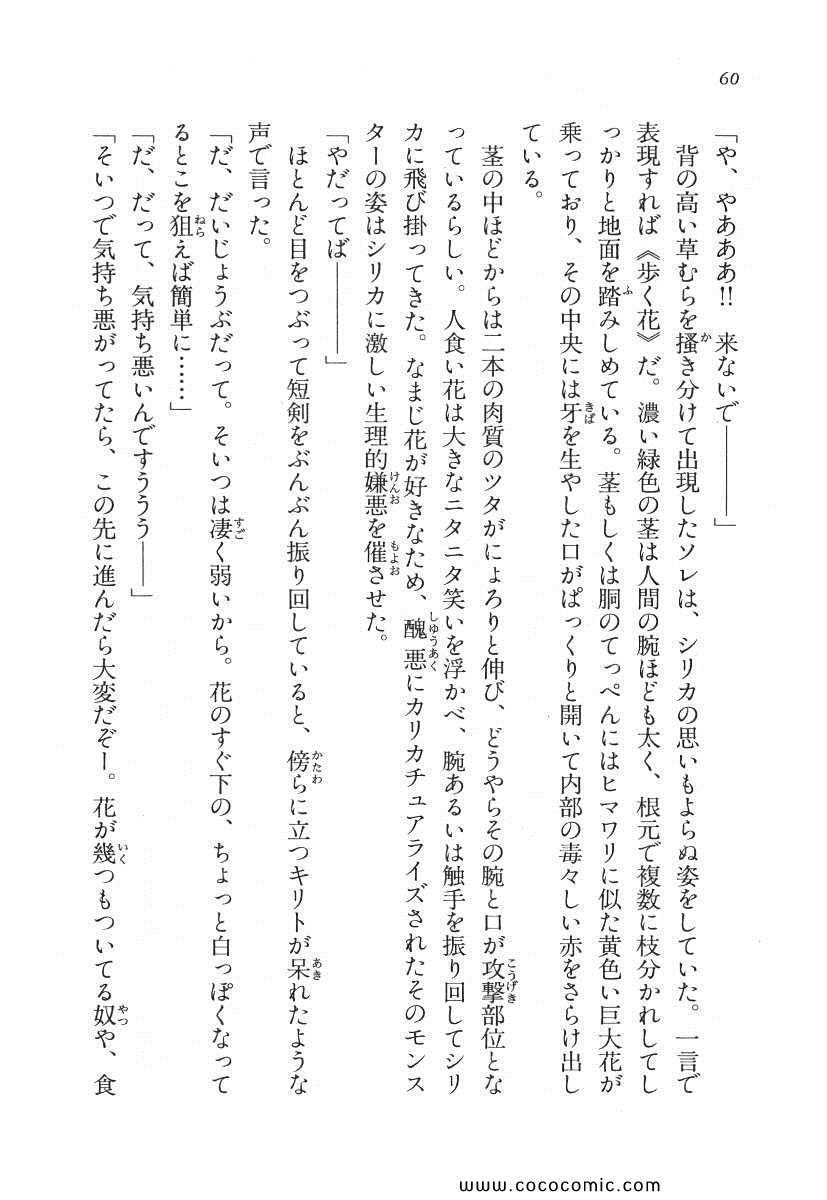 60
「や、やあああ!!　来ないで――――」
　背の高い草むらを掻き分けて出現したソレは、シリカの思いもよらぬ姿をしていた。一言で
表現すれば《歩く花》だ。濃い緑色の茎は人間の腕ほども太く、根元で複数に枝分かれしてし
っかりと地面を踏みしめている。茎もしくは胴のてっぺんにはヒマワリに似た黄色い巨大花が
乗っており、その中央には牙を生やした口がぱっくりと開いて内部の毒々しい赤をさらけ出し
ている。
　茎の中ほどからは二本の肉質のツタがにょろりと伸び、どうやらその腕と口が攻撃部位とな
っているらしい。人食い花は大きなニタニタ笑いを浮かべ、腕あるいは触手を振り回してシリ
カに飛び掛ってきた。なまじ花が好きなため、醜悪にカリカチュアライズされたそのモンス
ターの姿はシリカに激しい生理的嫌悪を催させた。
「やだってば――――」
　ほとんど目をつぶって短剣をぶんぶん振り回していると、傍らに立つキリトが呆れたような
声で言った。
「だ、だいじょうぶだって。そいつは凄く弱いから。花のすぐ下の、ちょっと白っぽくなって
るとこを狙えば簡単に……」
「だ、だって、気持ち悪いんですううう――」
「そいつで気持ち悪がってたら、この先に進んだら大変だぞー。花が幾つもついてる奴や、食
www.cococomic.com